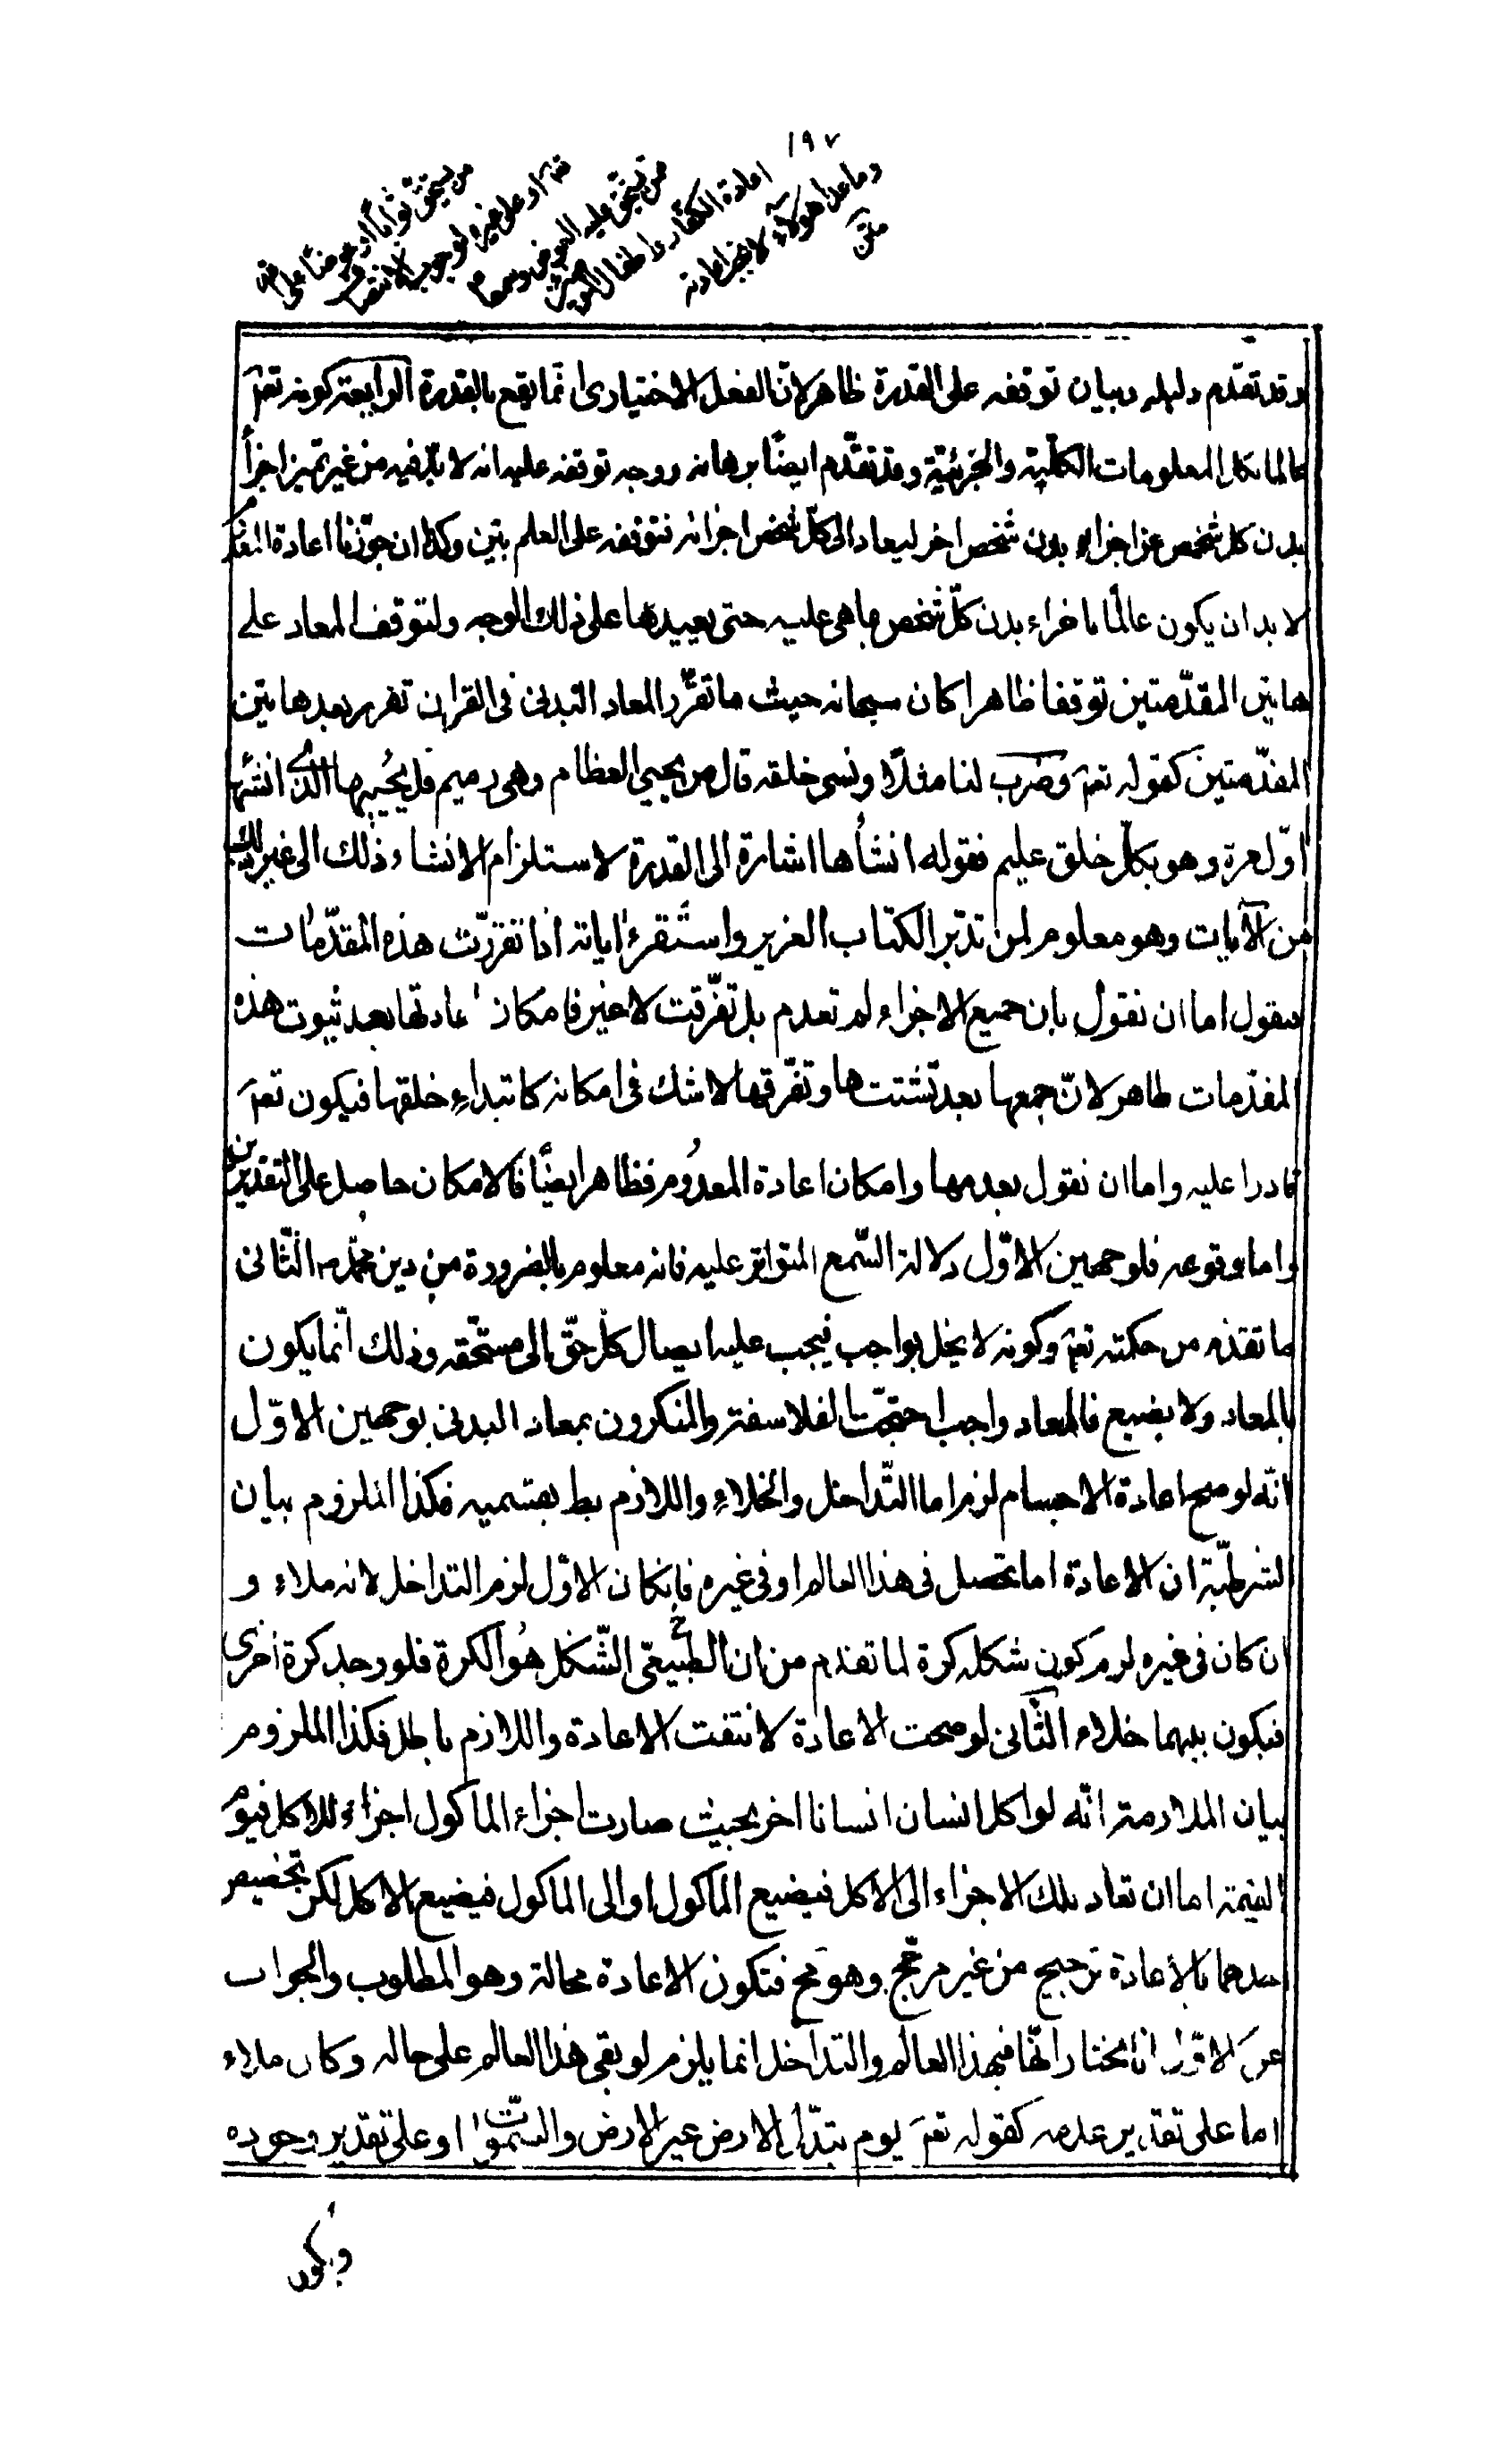 ١٩٧
من يستحق ثوابا أو عوضا عليه تعالى
او على غيره لوجوب الانتصاف
من يستحق عليه العوض وسمعا
اعادة الكفار واطفال المؤمنين
وما عدا هؤلاء لا يجب اعادته
متن
وقد تقدم دليله وبيان توقفه على القدرة ظاهر لانّ الفعل الاختيارى انّما يقع بالقدرة الرابعة كونه تعم
عالما بكل المعلومات الكلّية والجزئيّة وقد تقدّم ايضًا برهانه ووجه توقفه عليه انه لا بدّ فيه من غير تميز اجزأ
بدن كل شخص عن اجزاء بدن شخص اخر ليعاد الى كلّ شخص اجزائه فتوقفه على العلم بيّن وكذا ان جوّزنا اعادة المعدوم
لا بد ان يكون عالمًا باجزاء بدن كلّ شخص بما هى عليه حتى يعيدها على ذلك الوجه ولتوقف المعاد على
هاتين المقدّمتين توقفا ظاهرا كان سبحانه حيث ما تقرّر المعاد البدنى فى القران تقرر بعد هاتين
المقدّمتين كقوله تعم وضرب لنا مثلًا ونسى خلقه قال من يحيي العظام وهى رميم قل يحُييها الّذى انشأها
اوّل مرة وهو بكلّ خلق عليم فقوله انشأها اشارة الى القدرة لاستلزام الانشاء ذلك الى غير ذلك
من الآيات وهو معلوم لمن تدبّر الكتاب العزيز واستقرء اياته اذا تقررّت هذه المقدّمات
فنقول اما ان نقول بان جميع الاجزاء لم تعدم بل تفّرقت لا غير فامكان اعادتها بعد ثبوت هذه
المقدمات ظاهر لانّ جمعها بعد تشتتها وتفّرقها لا شك فى امكانه كابتداءِ خلقها فيكون تعم
قادرا عليه واما ان نقول بعدمها وامكان اعادة المعدُوم فظاهر ايضًا فالامكان حاصل على التقديرين
واما وقوعه فلوجهين الاوّل دلالة السّمع المتواتر عليه فانه معلوم بالضرورة من دين محمّد ص الثّانى
ما تقدم من حكمته تعم وكونه لا يخل بواجب فيجب عليه ايصال كل حقّ الى مستحّقه وذلك انّما يكون
بالمعاد ولا يضيع فالمعاد واجب احتجّت الفلاسفة والمنكرون بمعاد البدنى بوجهين الاوّل
انّه لو صح اعادة الاجسام لزم اما التّداخل والخلاءِ واللازم بط بقسميه فكذا الملزوم بيان
الشرطيّة ان الاعادة اما تحصل فى هذا العالم او فى غيره فانكان الاوّل لزم التداخل لانه ملاء و
ان كان فى غيره لزم كون شكله كرة لما تقدم من ان الطّبيعّى الشّكل هُو الكرة فلو وجد كرة اخرى
فيكون بينهما خلاء الثّانى لو صحت الاعادة لانتفت الاعادة واللازم باطل فكذا الملزوم
بيان الملازمة انّه لو اكل انسان انسانا اخر بحيث صارت اجزاء الماكول اجزاء للاكل فيوم
القيمة اما ان تعاد تلك الاجزاء الى الاكل فيضيع الماكول او الى الماكول فيضيع الاكل لكن تخصيص
احدهما بالاعادة ترجيح من غير مرجّح وهو مح فتكون الاعادة محالة وهو المطلوب والجواب
عن الاوّل انا نختار انّها فى هذا العالم والتداخل انما يلزم لو بقى هذا العالم على حاله وكان ملاء
اما على تقدير عدمه كقوله تعم يوم تبدّل الارض غير الارض والسّموات او على تقدير وجوده
ويكون